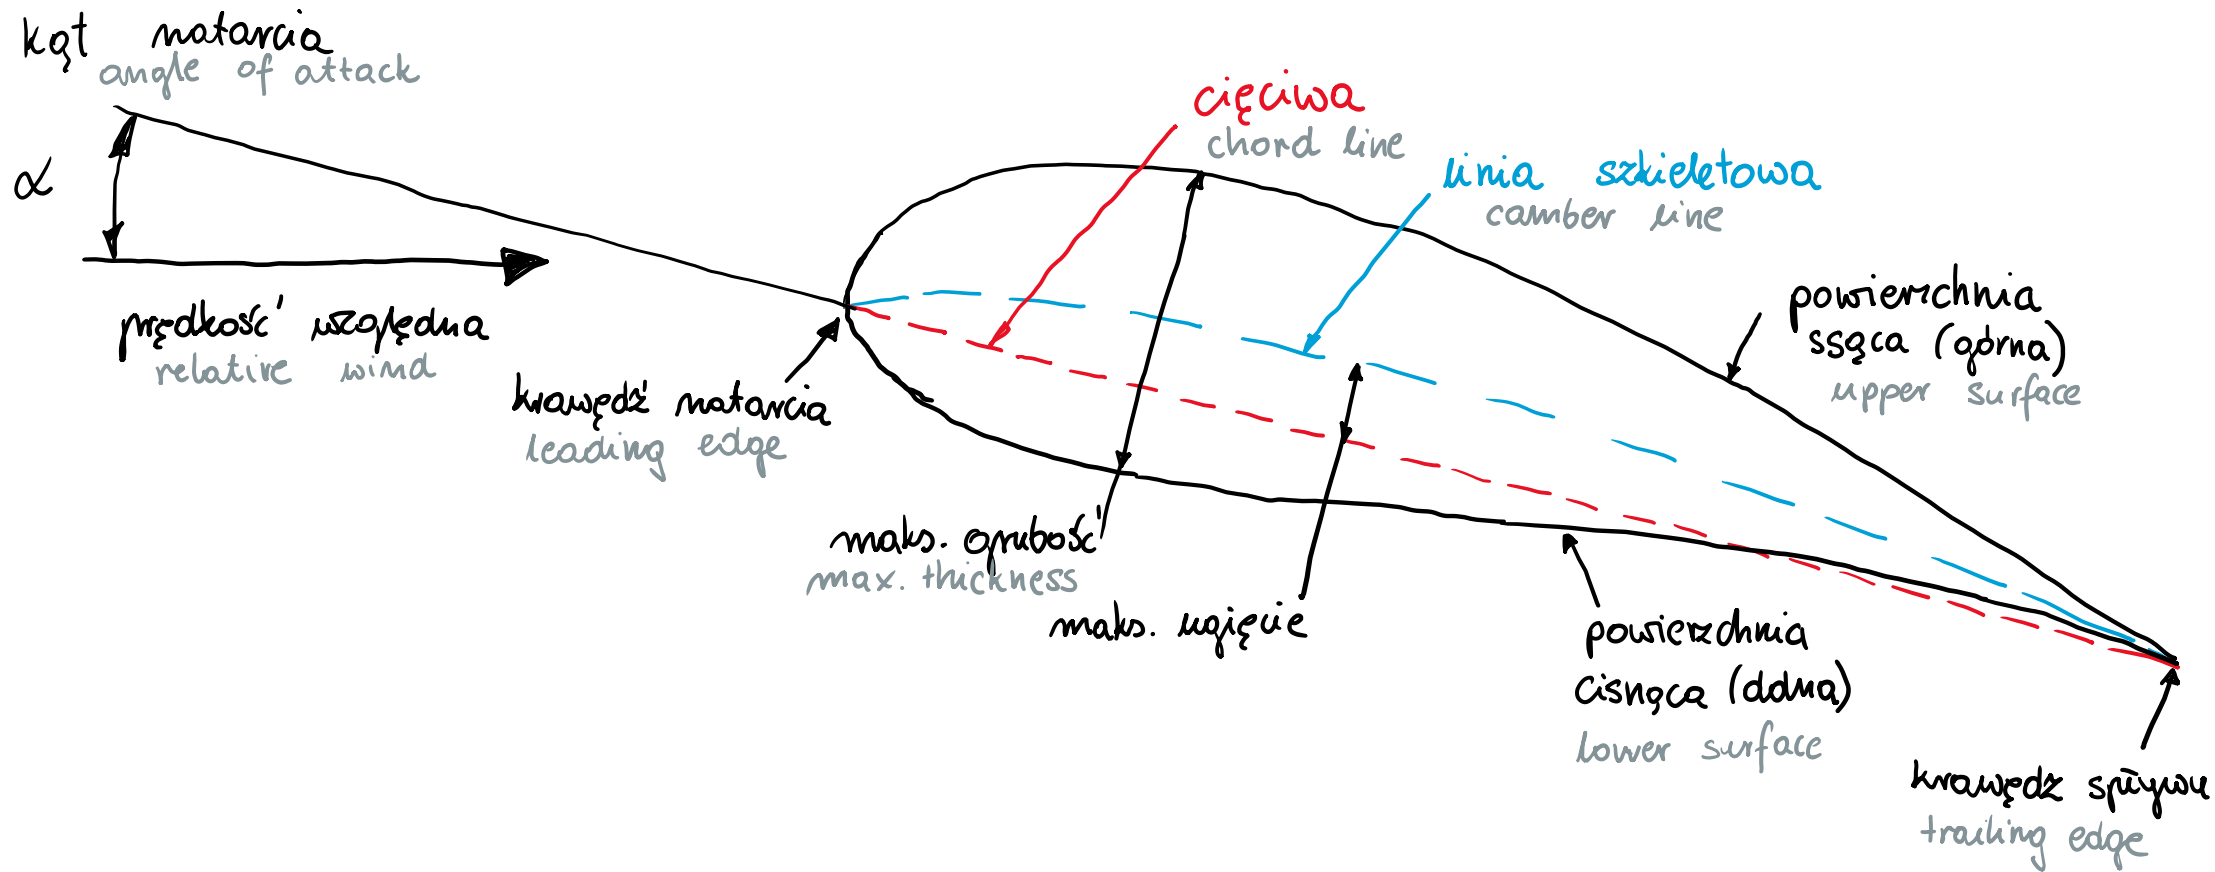 kąt natarcia
angle of attack
α
prędkość względna
relative wind
krawędź natarcia
leading edge
cięciwa
chord line
linia szkieletowa
camber line
powierzchnia
ssąca (górna)
upper surface
maks. grubość
max. thickness
maks. ugięcie
powierzchnia
cisnąca (dolna)
lower surface
krawędź spływu
trailing edge